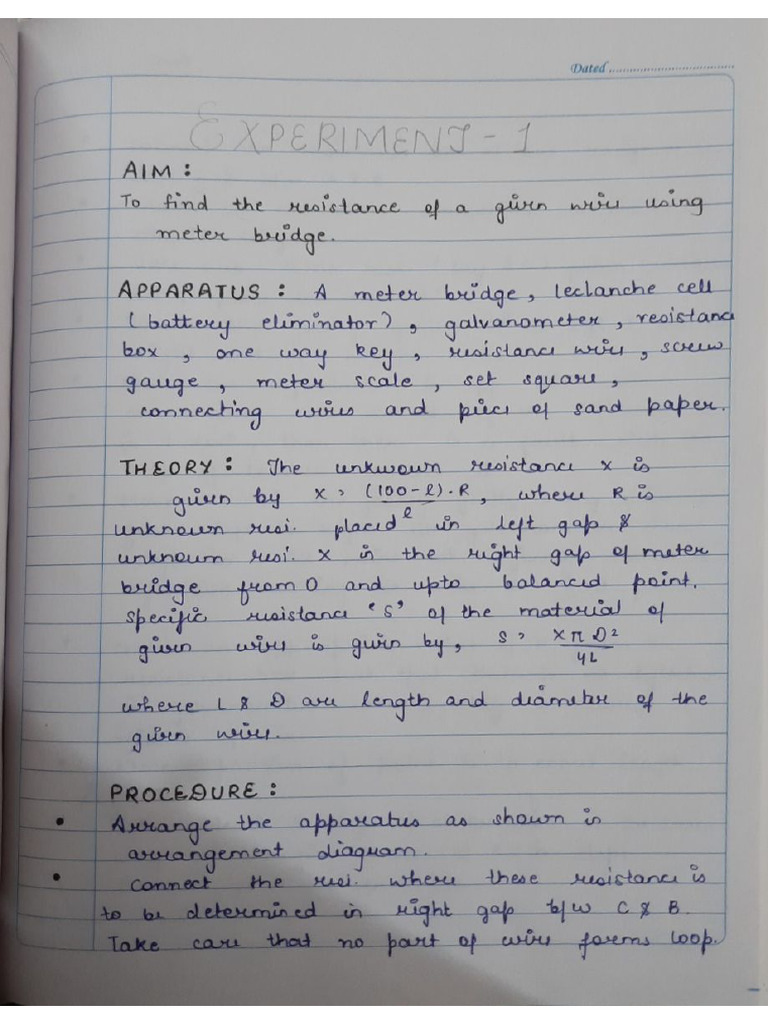 Dated
EXPERIMENT - 1
AIM :
To find the resistance of a given wire using
meter bridge.
APPARATUS : A meter bridge, leclanche cell
(battery eliminator), galvanometer, resistance
box, one way key, resistance wire, screw
gauge, meter scale, set square,
connecting wires and piece of sand paper.
THEORY : The unkwown resistance x is
given by x = (100-l).R / l, where R is
unknown resi. placed in left gap &
unknown resi. x in the right gap of meter
bridge from 0 and upto balanced point.
Specific resistance 'S' of the material of
given wire is given by, S = XπD² / 4L
where L & D are length and diameter of the
given wire.
PROCEDURE :
• Arrange the apparatus as shown in
arrangement diagram.
• Connect the resi. where these resistance is
to be determined in right gap b/w C & B.
Take care that no part of wire forms loop.